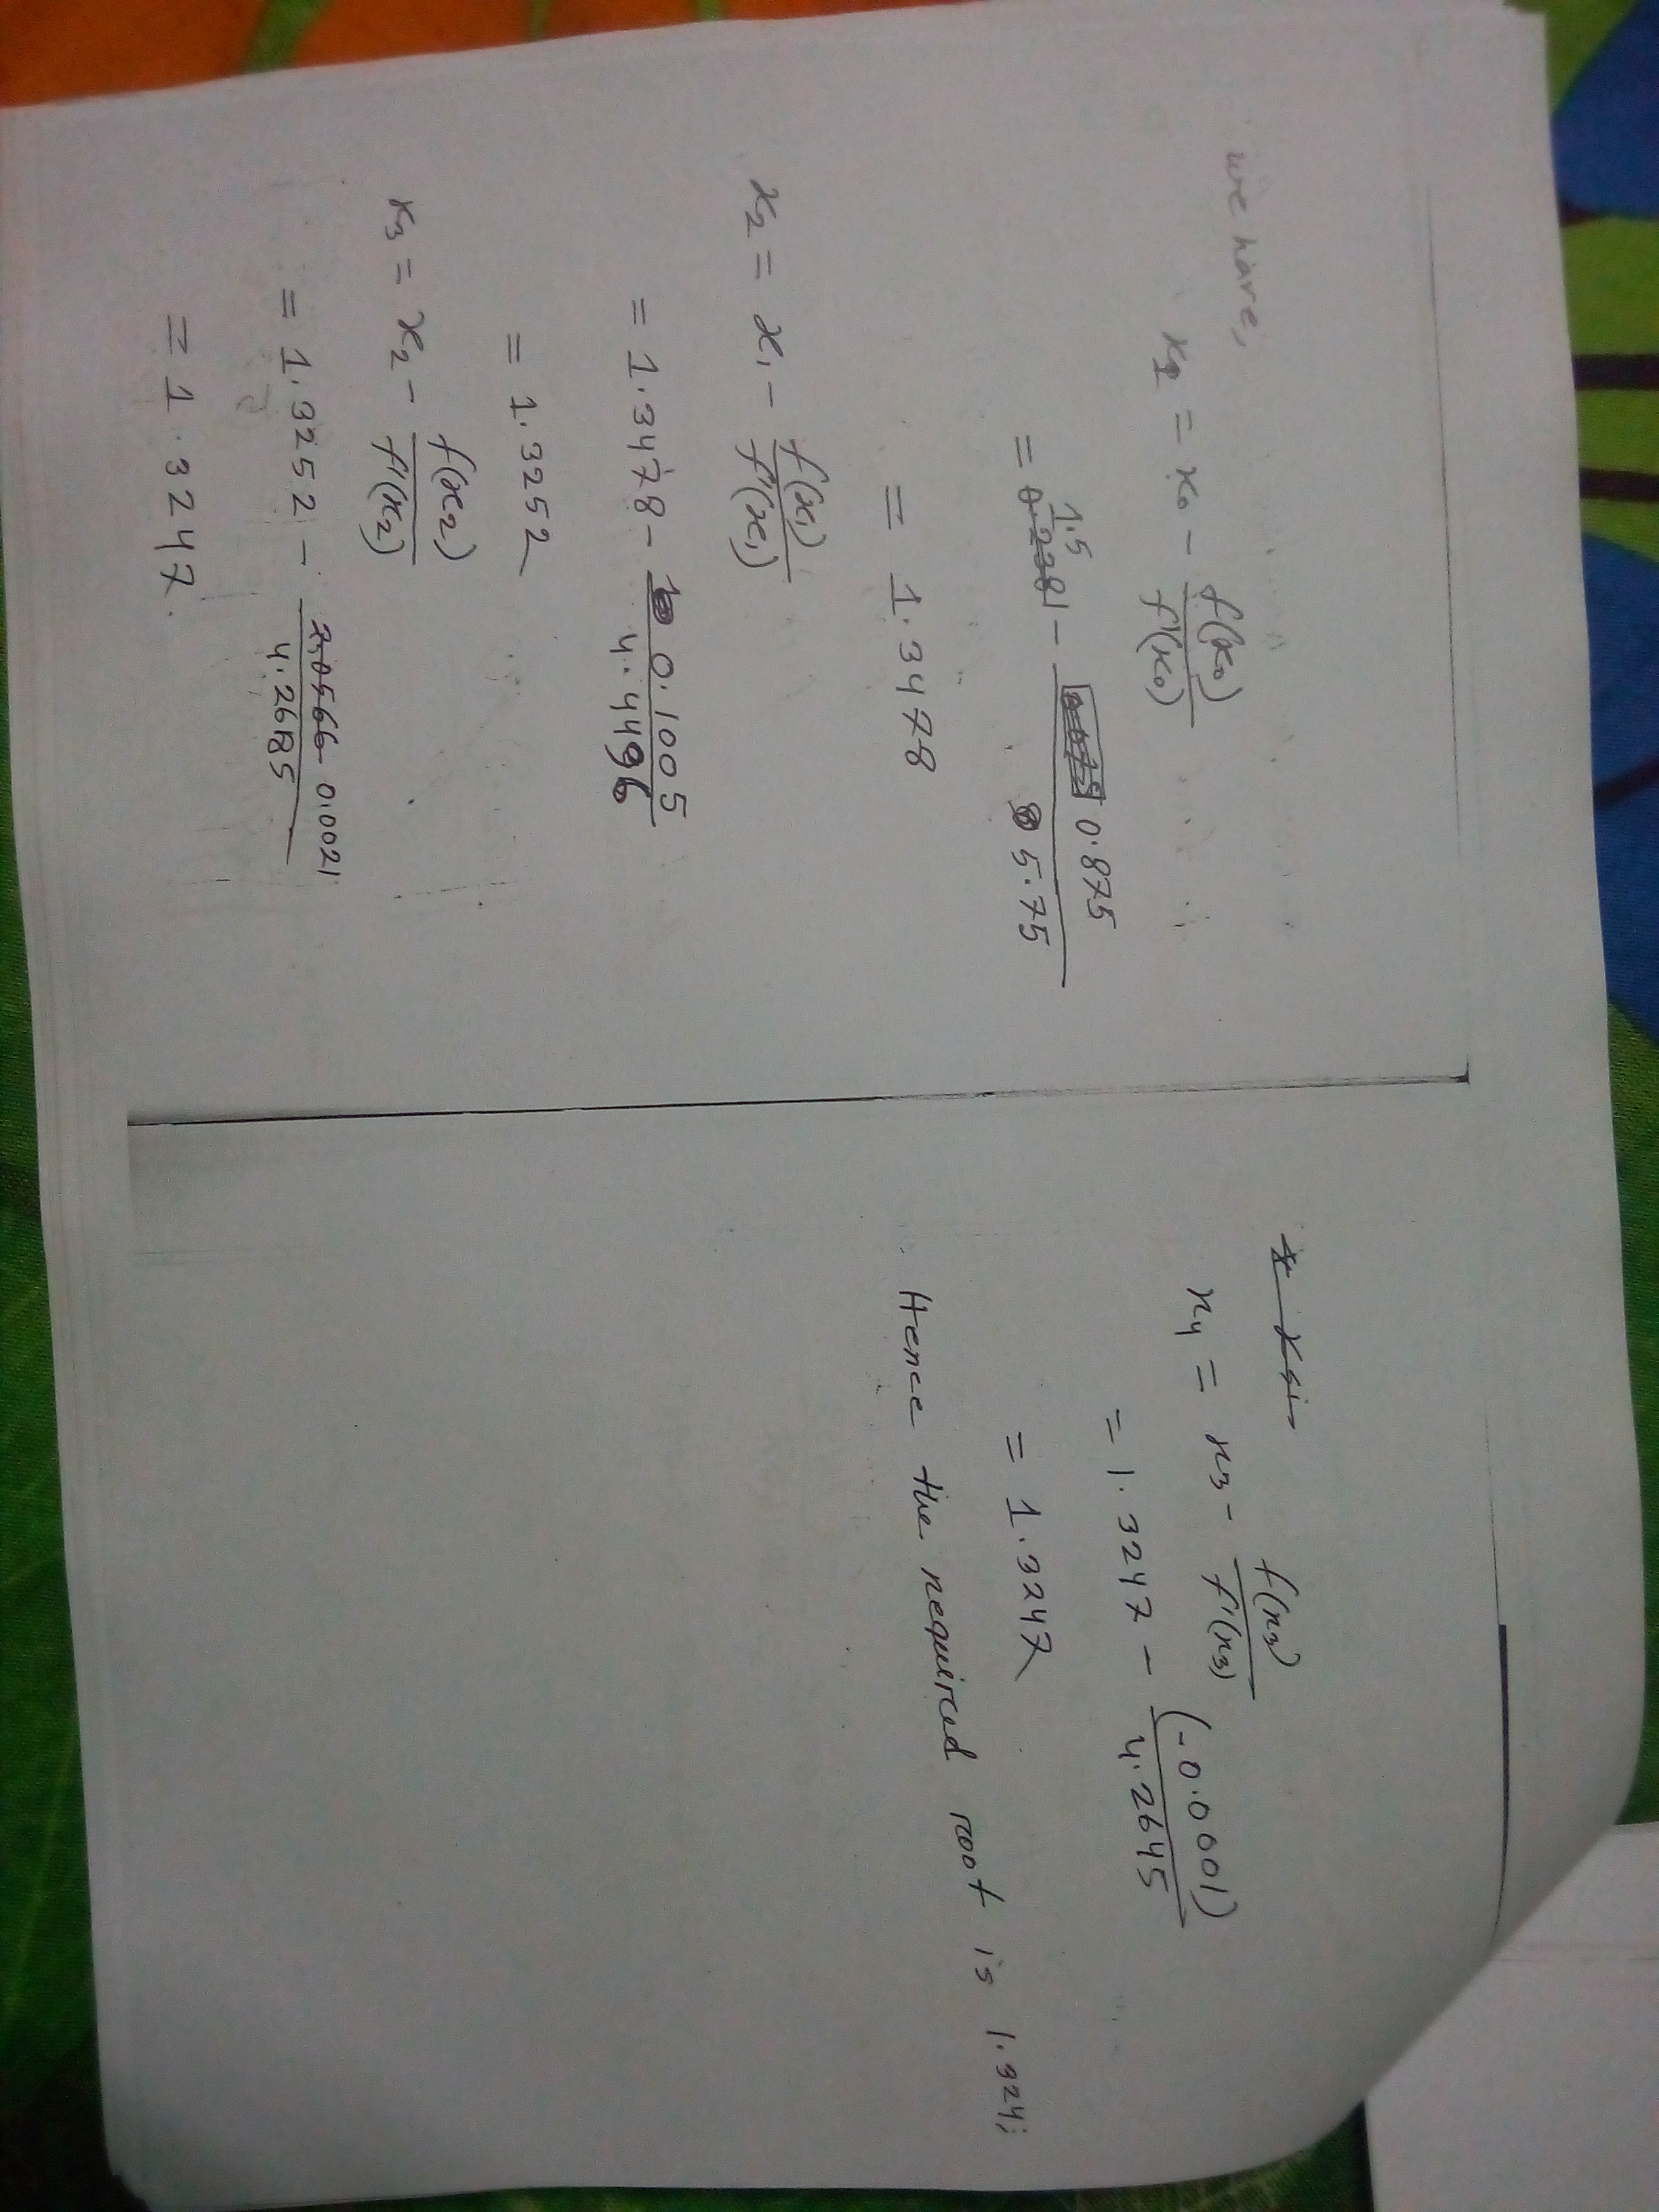 we have,
x1 = x0 - f(x0) / f'(x0)
= 1.5 - 0.875 / 5.75
= 1.3478
x2 = x1 - f(x1) / f'(x1)
= 1.3478 - 0.1005 / 4.4496
= 1.3252
x3 = x2 - f(x2) / f'(x2)
= 1.3252 - 0.0021 / 4.2685
= 1.3247.
x4 = x3 - f(x3) / f'(x3)
= 1.3247 - (-0.0001) / 4.2645
= 1.3247
Hence the required root is 1.324;